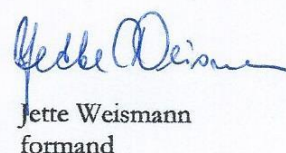 Jette Weismann
Jette Weismann
formand